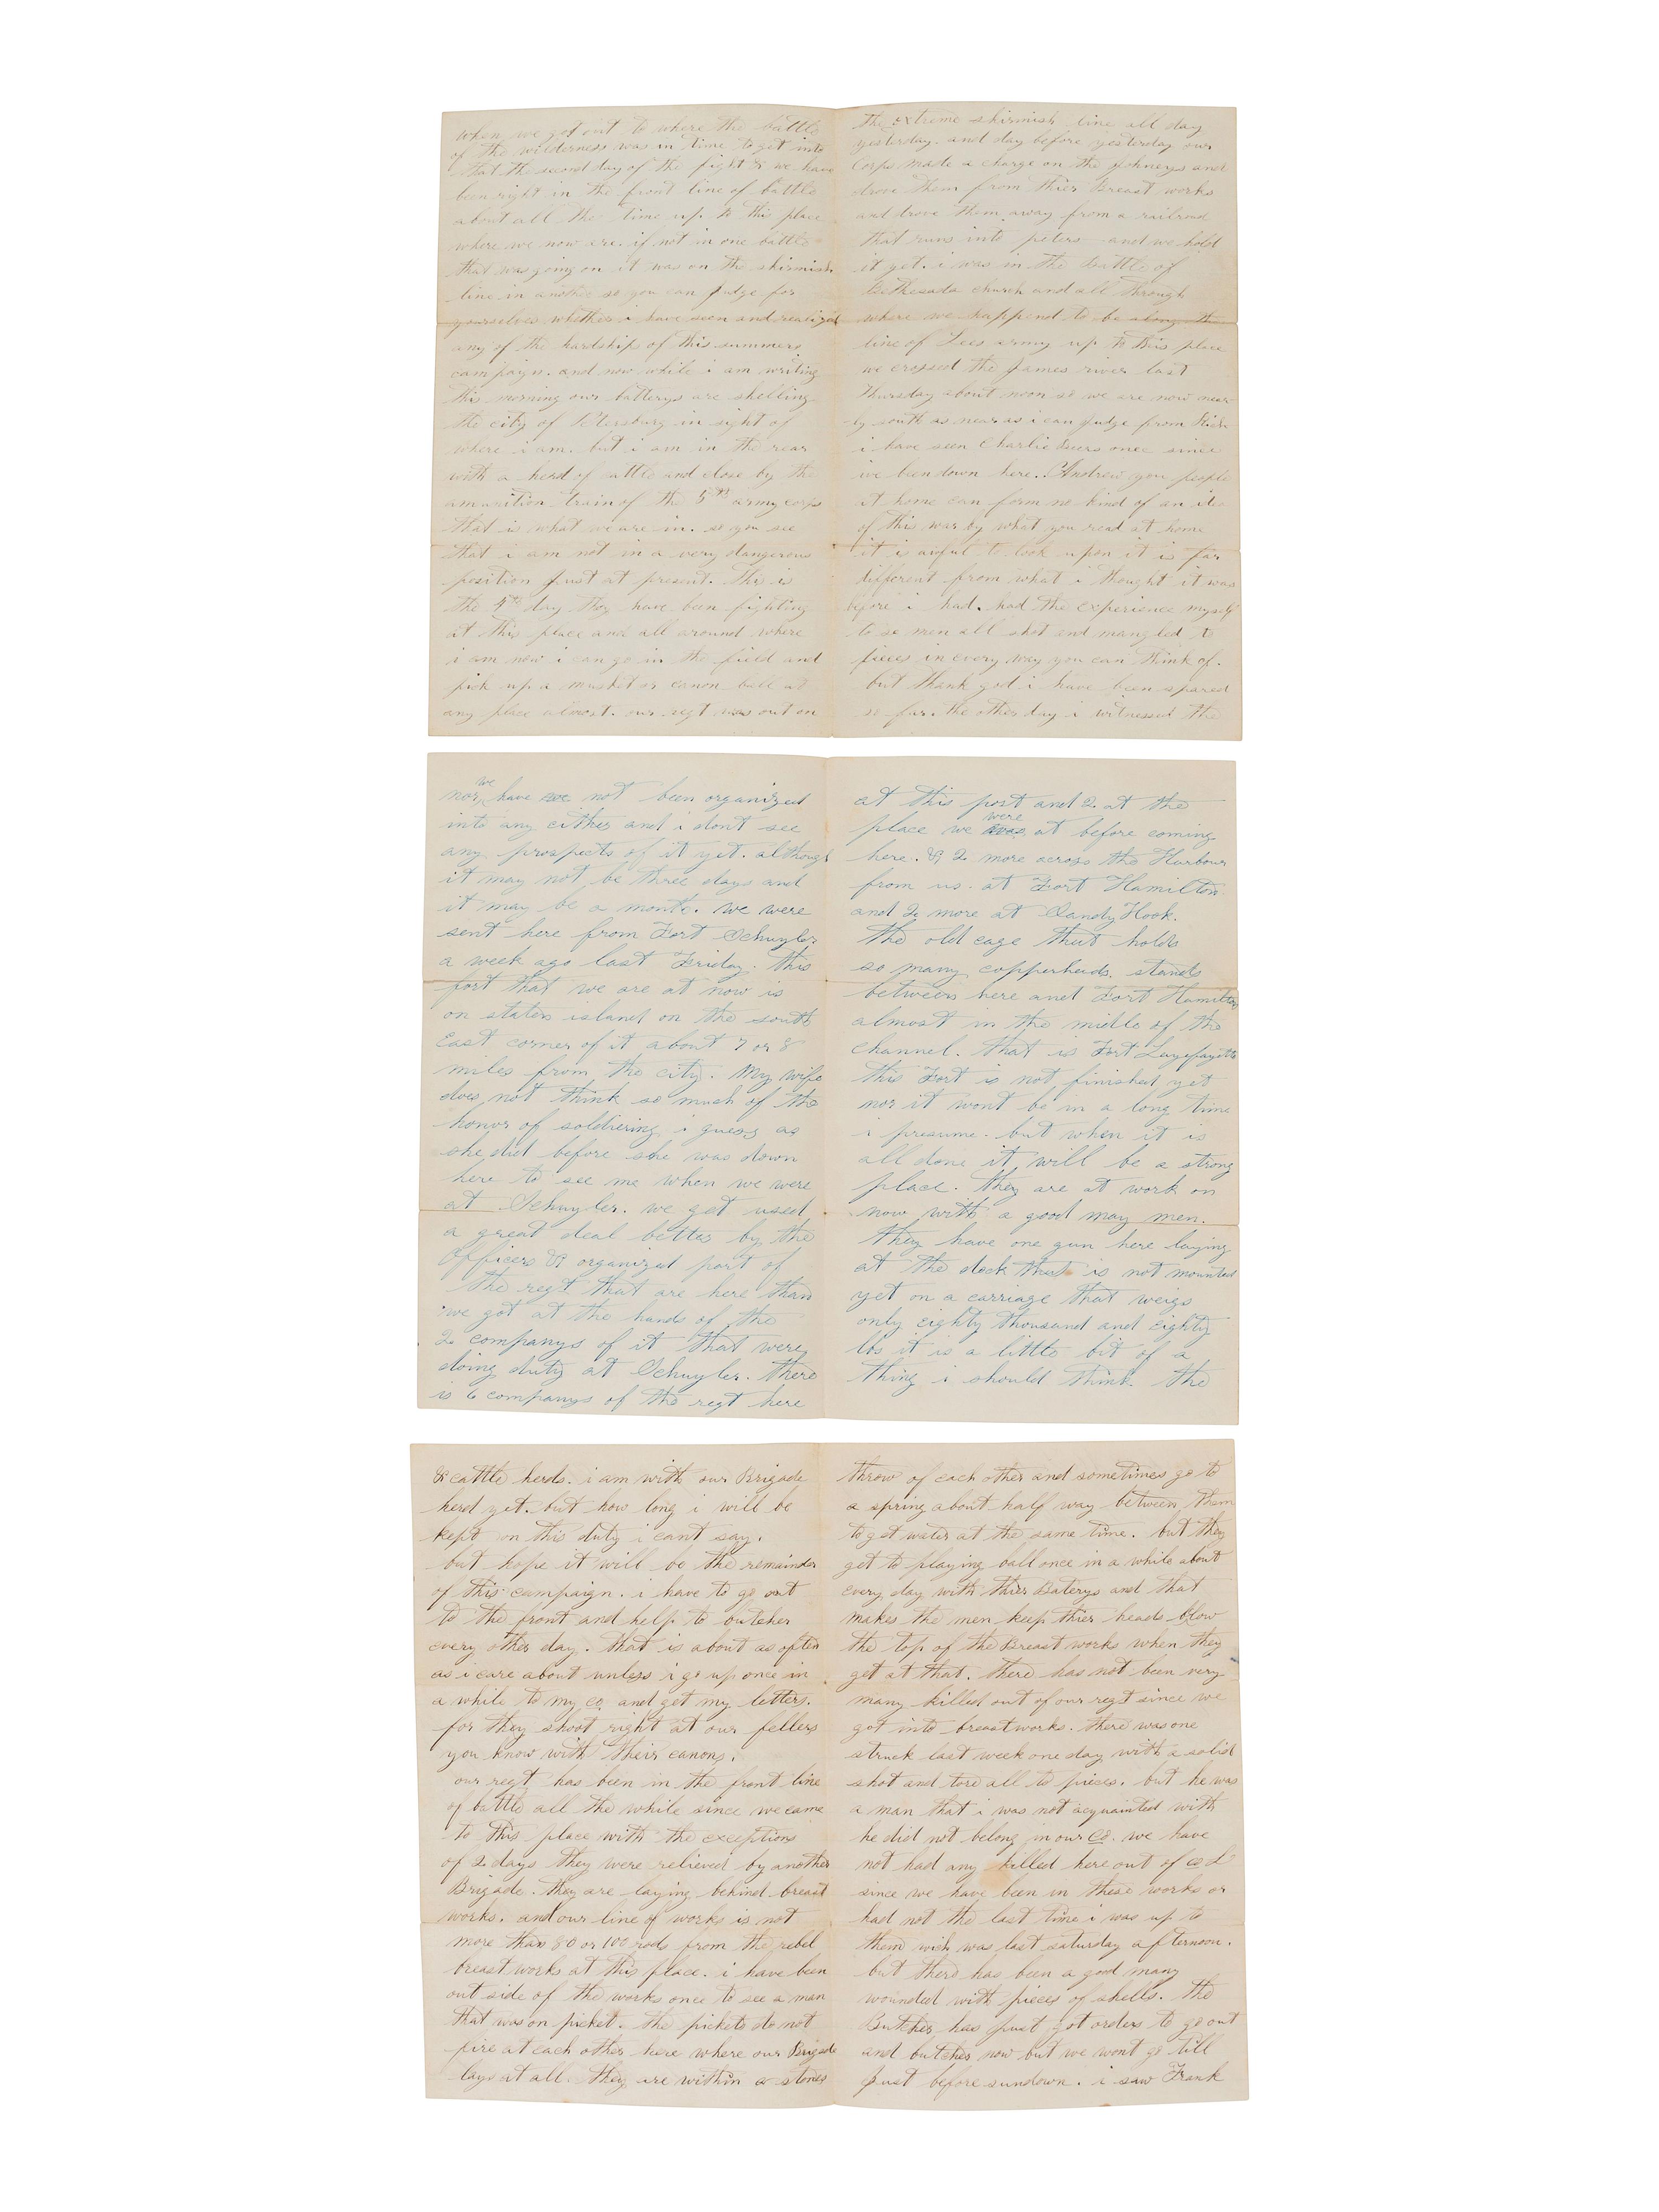 When we got out to where the battle
of the wilderness was in time to get into
that the second day of the fight & we have
been right in the front line of battle
about all the time up to this place
where we now are. if not in one battle
that was going on it was on the skirmish
line in another so you can judge for
yourselves whether i have seen and realized
any of the hardships of this summers
campaign. and now while i am writing
this morning our batterys are shelling
the city of Petersburg in sight of
where i am. but i am in the rear
with a herd of cattle and close by the
amunition train of the 5th army corps
that is what we are in. so you see
that i am not in a very dangerous
position just at present. this is
the 4th day they have been fighting
at this place and all around where
i am now i can go in the field and
pick up a musket or canon ball at
any place almost. our regt was out on
the extreme skirmish line all day
yesterday. and day before yesterday our
Corps made a charge on the Johneys and
drove them from thier Breast works
and drove them away from a railroad
that runs into peters and we hold
it yet. i was in the battle of
Bethesada church and all through
where we happend to be along the
line of Lees army up to this place
we crossed the James river last
Thursday about noon so we are now near
ly south as near as i can judge from Rich
i have seen Charlie Beers once since
ive been down here. Andrew you people
at home can form no kind of an idea
of this war by what you read at home
it is awful to look upon it is far
different from what i thought it was
before i had. had the experience myself
to se men all shot and mangled to
pieces in every way you can think of.
but thank god i have been spared
so far. the other day i witnessed the
we
nor have we not been organized
into any either and i dont see
any prospects of it yet. although
it may not be three days and
it may be a month. we were
sent here from Fort Schuyler
a week ago last Friday. this
fort that we are at now is
on staten island on the south
East corner of it about 7 or 8
miles from the city. My wife
does not think so much of the
honor of soldiering i guess as
she did before she was down
here to see me when we were
at Schuyler. we get used
a great deal better by the
Officers & organized part of
the regt that are here than
we got at the hands of the
2 companys of it that were
doing duty at Schuyler. there
is 6 companys of the regt here
at this post and 2 at the
were
place we was at before coming
here. & 2 more across the Harbour
from us. at Fort Hamilton
and 2 more at Sandy Hook.
the old cage that holds
so many copperheads. stands
between here and Fort Hamilton
almost in the midle of the
channel. that is Fort Layefayette
this Fort is not finished yet
nor it wont be in a long time
i presume. but when it is
all done it will be a strong
place. they are at work on
now with a good may men.
they have one gun here laying
at the dock that is not mounted
yet on a carriage that weigs
only eighty thousand and eighty
lbs it is a little bit of a
thing i should think. the
& cattle herds. i am with our Brigade
herd yet. but how long i will be
kept on this duty i cant say.
but hope it will be the remainder
of this campaign. i have to go out
to the front and help to butcher
every other day. that is about as often
as i care about unless i go up once in
a while to my co. and get my letters.
for they shoot right at our fellers
you know with their canons.
our regt has been in the front line
of battle all the while since we came
to this place with the exceptions
of 2 days they were relieved by another
Brigade. they are laying behind breast
works. and our line of works is not
more than 80 or 100 rods from the rebel
breast works at this place. i have been
out side of the works once to see a man
that was on picket. the pickets do not
fire at each other here where our Brigade
lays at all. they are within a stones
throw of each other and sometimes go to
a spring about half way between them
to get water at the same time. but they
get to playing ball once in a while about
every day with thier Baterys and that
makes the men keep thier heads blow
the top of the Breast works when they
get at that. there has not been very
many killed out of our regt since we
got into breastworks. there was one
struck last week one day with a solid
shot and tore all to pieces. but he was
a man that i was not acquainted with
he did not belong in our Co. we have
not had any killed here out of co L
since we have been in these works or
had not the last time i was up to
them wich was last saturday afternoon.
but there has been a good many
wounded with pieces of shells. the
Butcher has just got orders to go out
and butcher now but we wont go till
just before sundown. i saw Frank